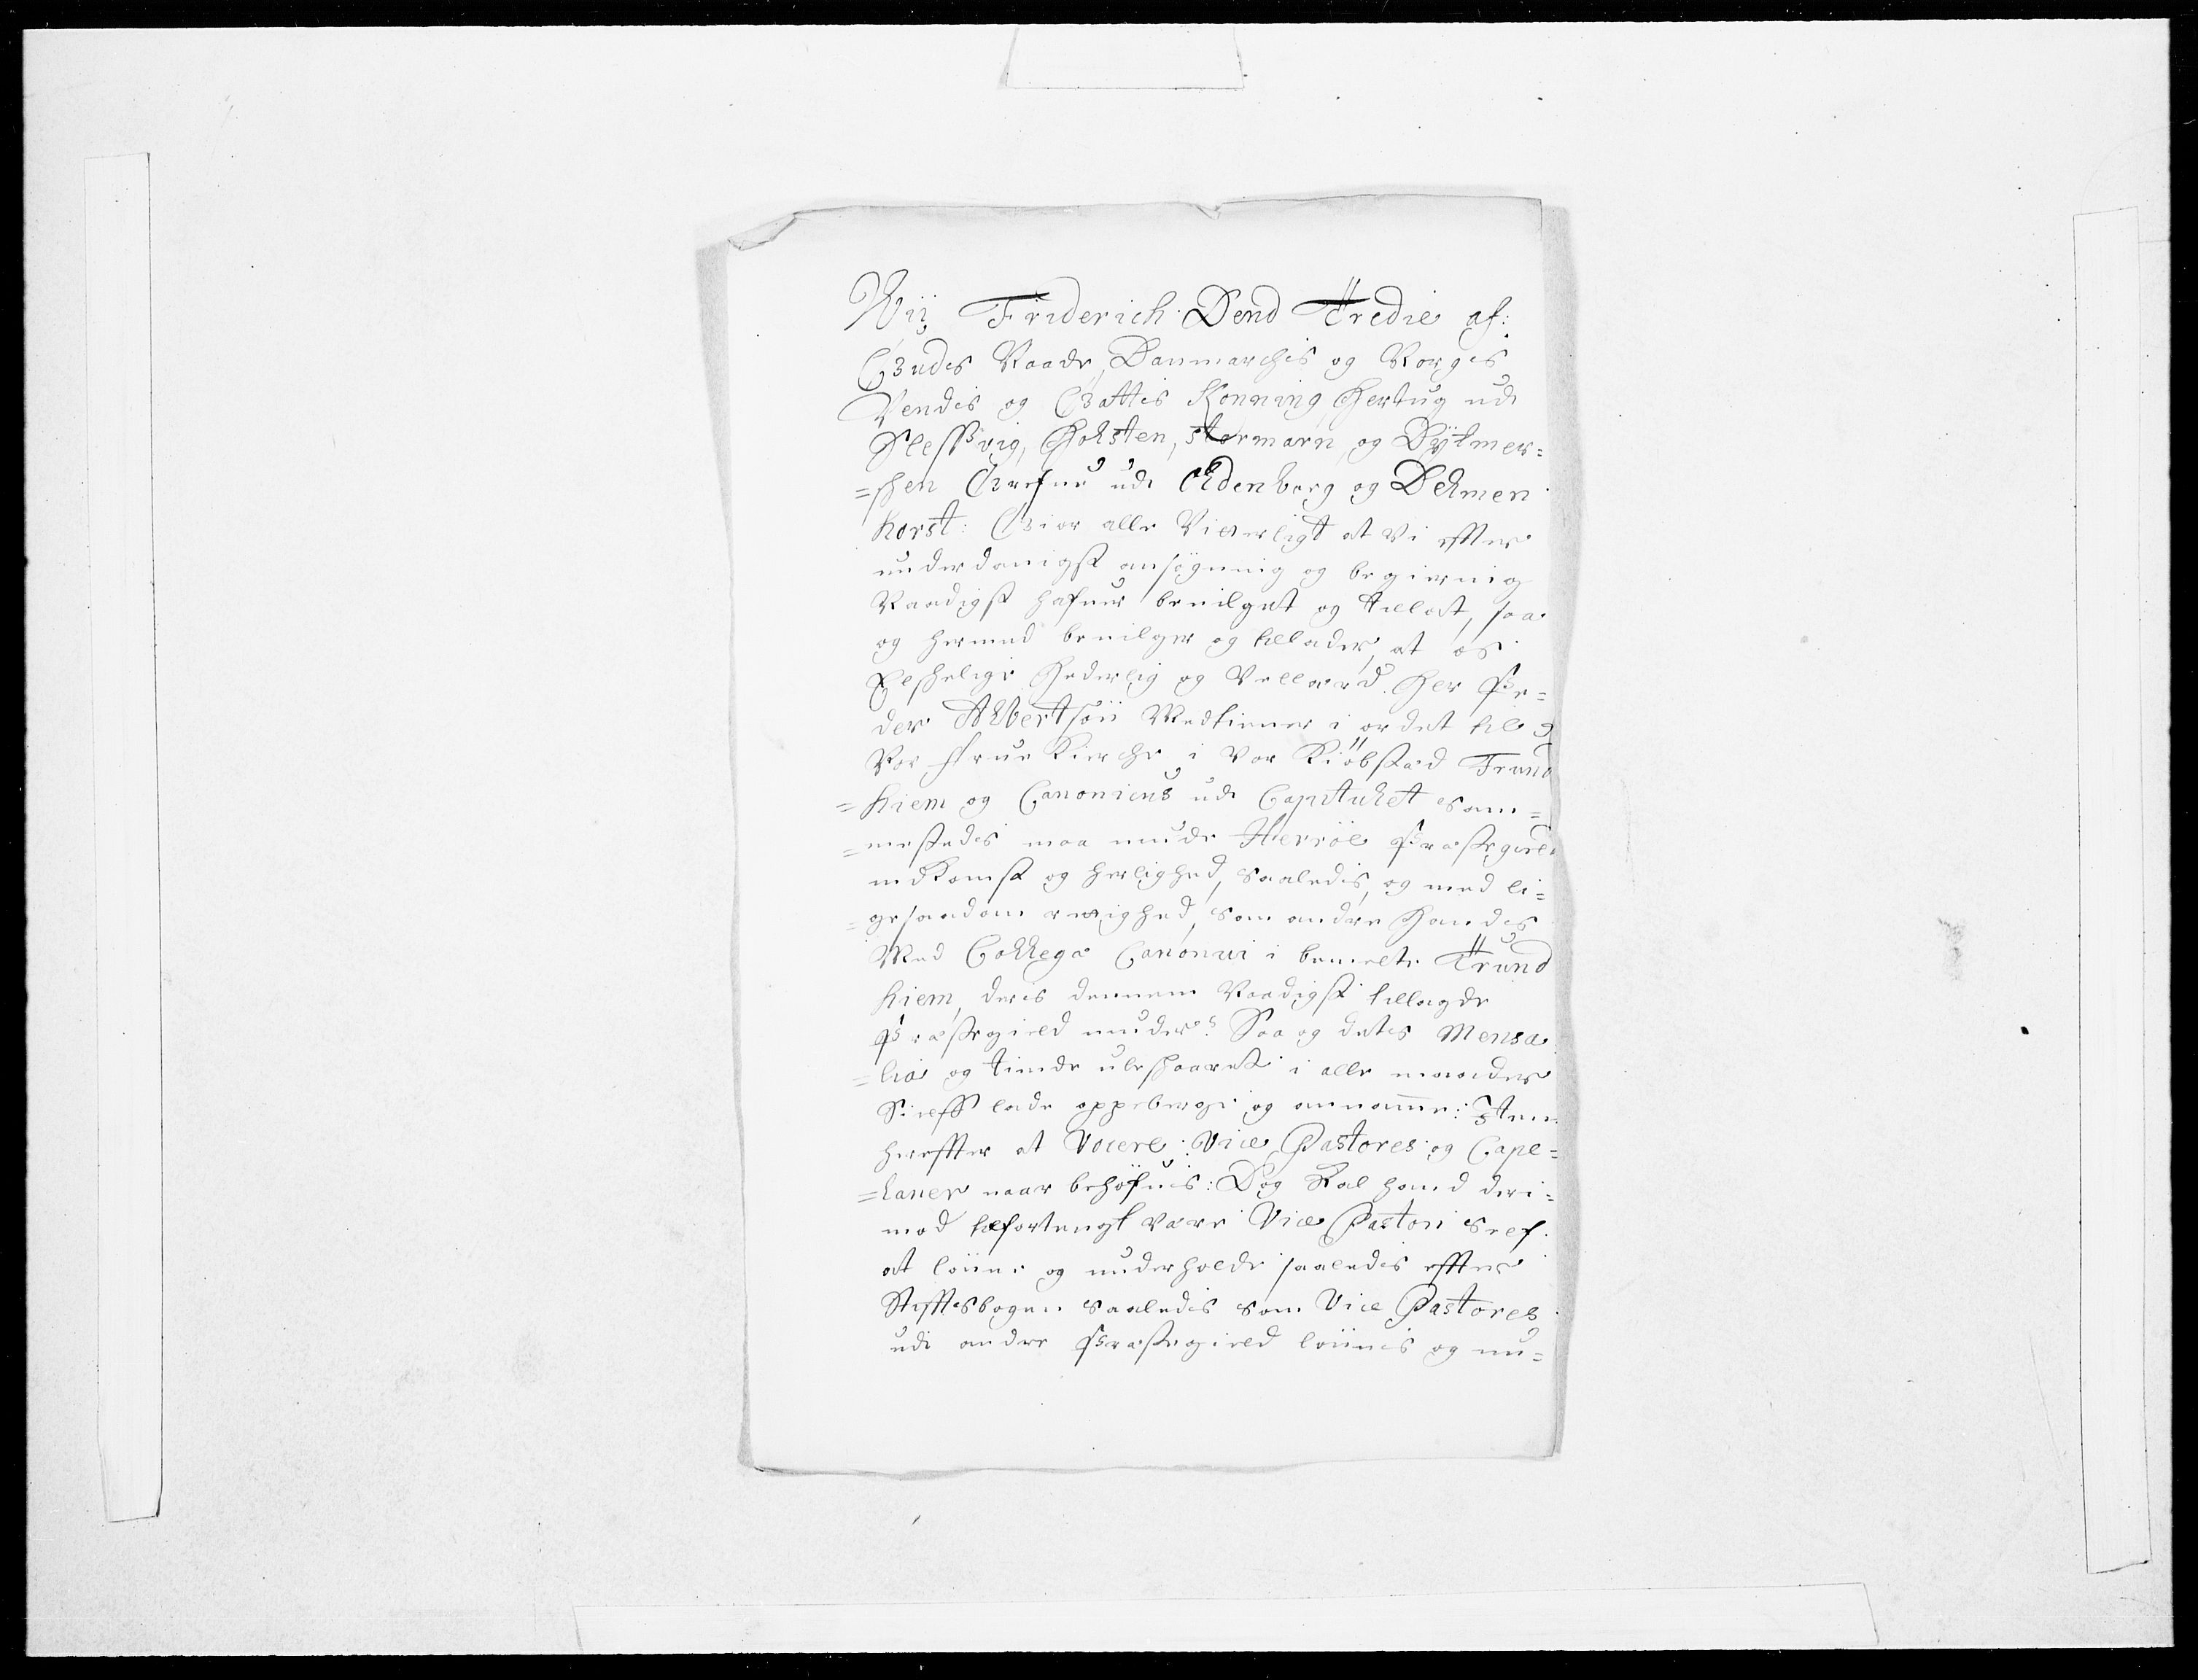 Wij Friderich Dend Tredie af:
Guds Naade, Danmarchis og Norges
Vendis og Gottis Konning, Hertug udi
Slessvig, Holsten, Stormarn, og Dytmer=
=schen Grefue udi Oldenborg og Delmen
horst: Giør alle Vitterligt at Vi effter
underdanigst ansøgning og begiering
Naadigst hafuer beuilget og tilladt, saa
og hermed beuilger og tillader, at os
Elschelige Hederlig og Vellærd. Her Pe=
der Albertsøn Medtiener i ordet til
Vor frue Kirche i Vor Kiöbstæd Trund
=hiem og Canonicus udi Capituletsam=
=mestedis maa niude Herröe Præstegield
indkomst og herlighed, saaledis, og med li=
=gesaadan rettighed, som andre Handes
Med Collegæ Canonici i bemelte Trund
hiem, deris dennem Naadigst tillagde
Præstegield niuder: Saa og dets Mensa
=lia og tiende ubeschaaret i alle maader
Sielff lade oppeberge og annamme: Item
hereffter at Vocere: Vice Pastores og Cape=
=laner naar behöfues: Dog skal hand deri=
mod tilfortengt være Vice Pastori self
at lönne og underholde saaledis effter
Stifftsbogen saaledis som Vice Pastores
udi andre Præstegield lönnis og un=